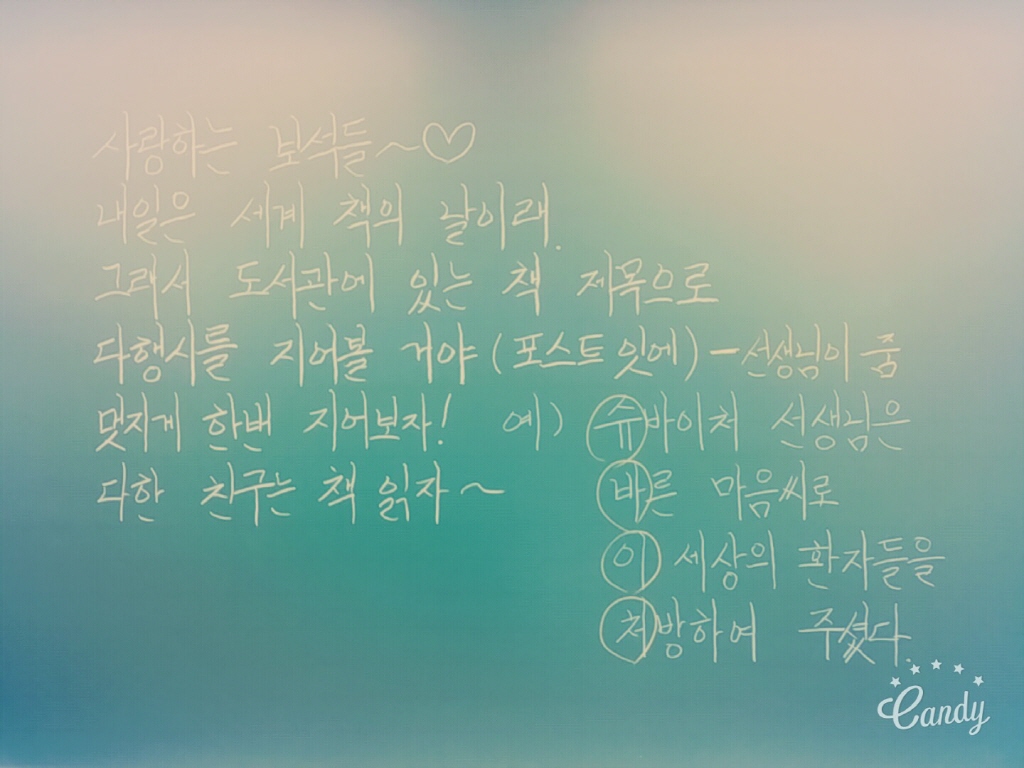 사랑하는 보석들~♡
내일은 세계 책의 날이래.
그래서 도서관에 있는 책 제목으로
다행시를 지어볼 거야 (포스트잇에) - 선생님이 줌
멋지게 한번 지어보자! 예) 슈바이처 선생님은
다한 친구는 책 읽자~ 바른 마음씨로
이 세상의 환자들을
처방하여 주셨다
Candy